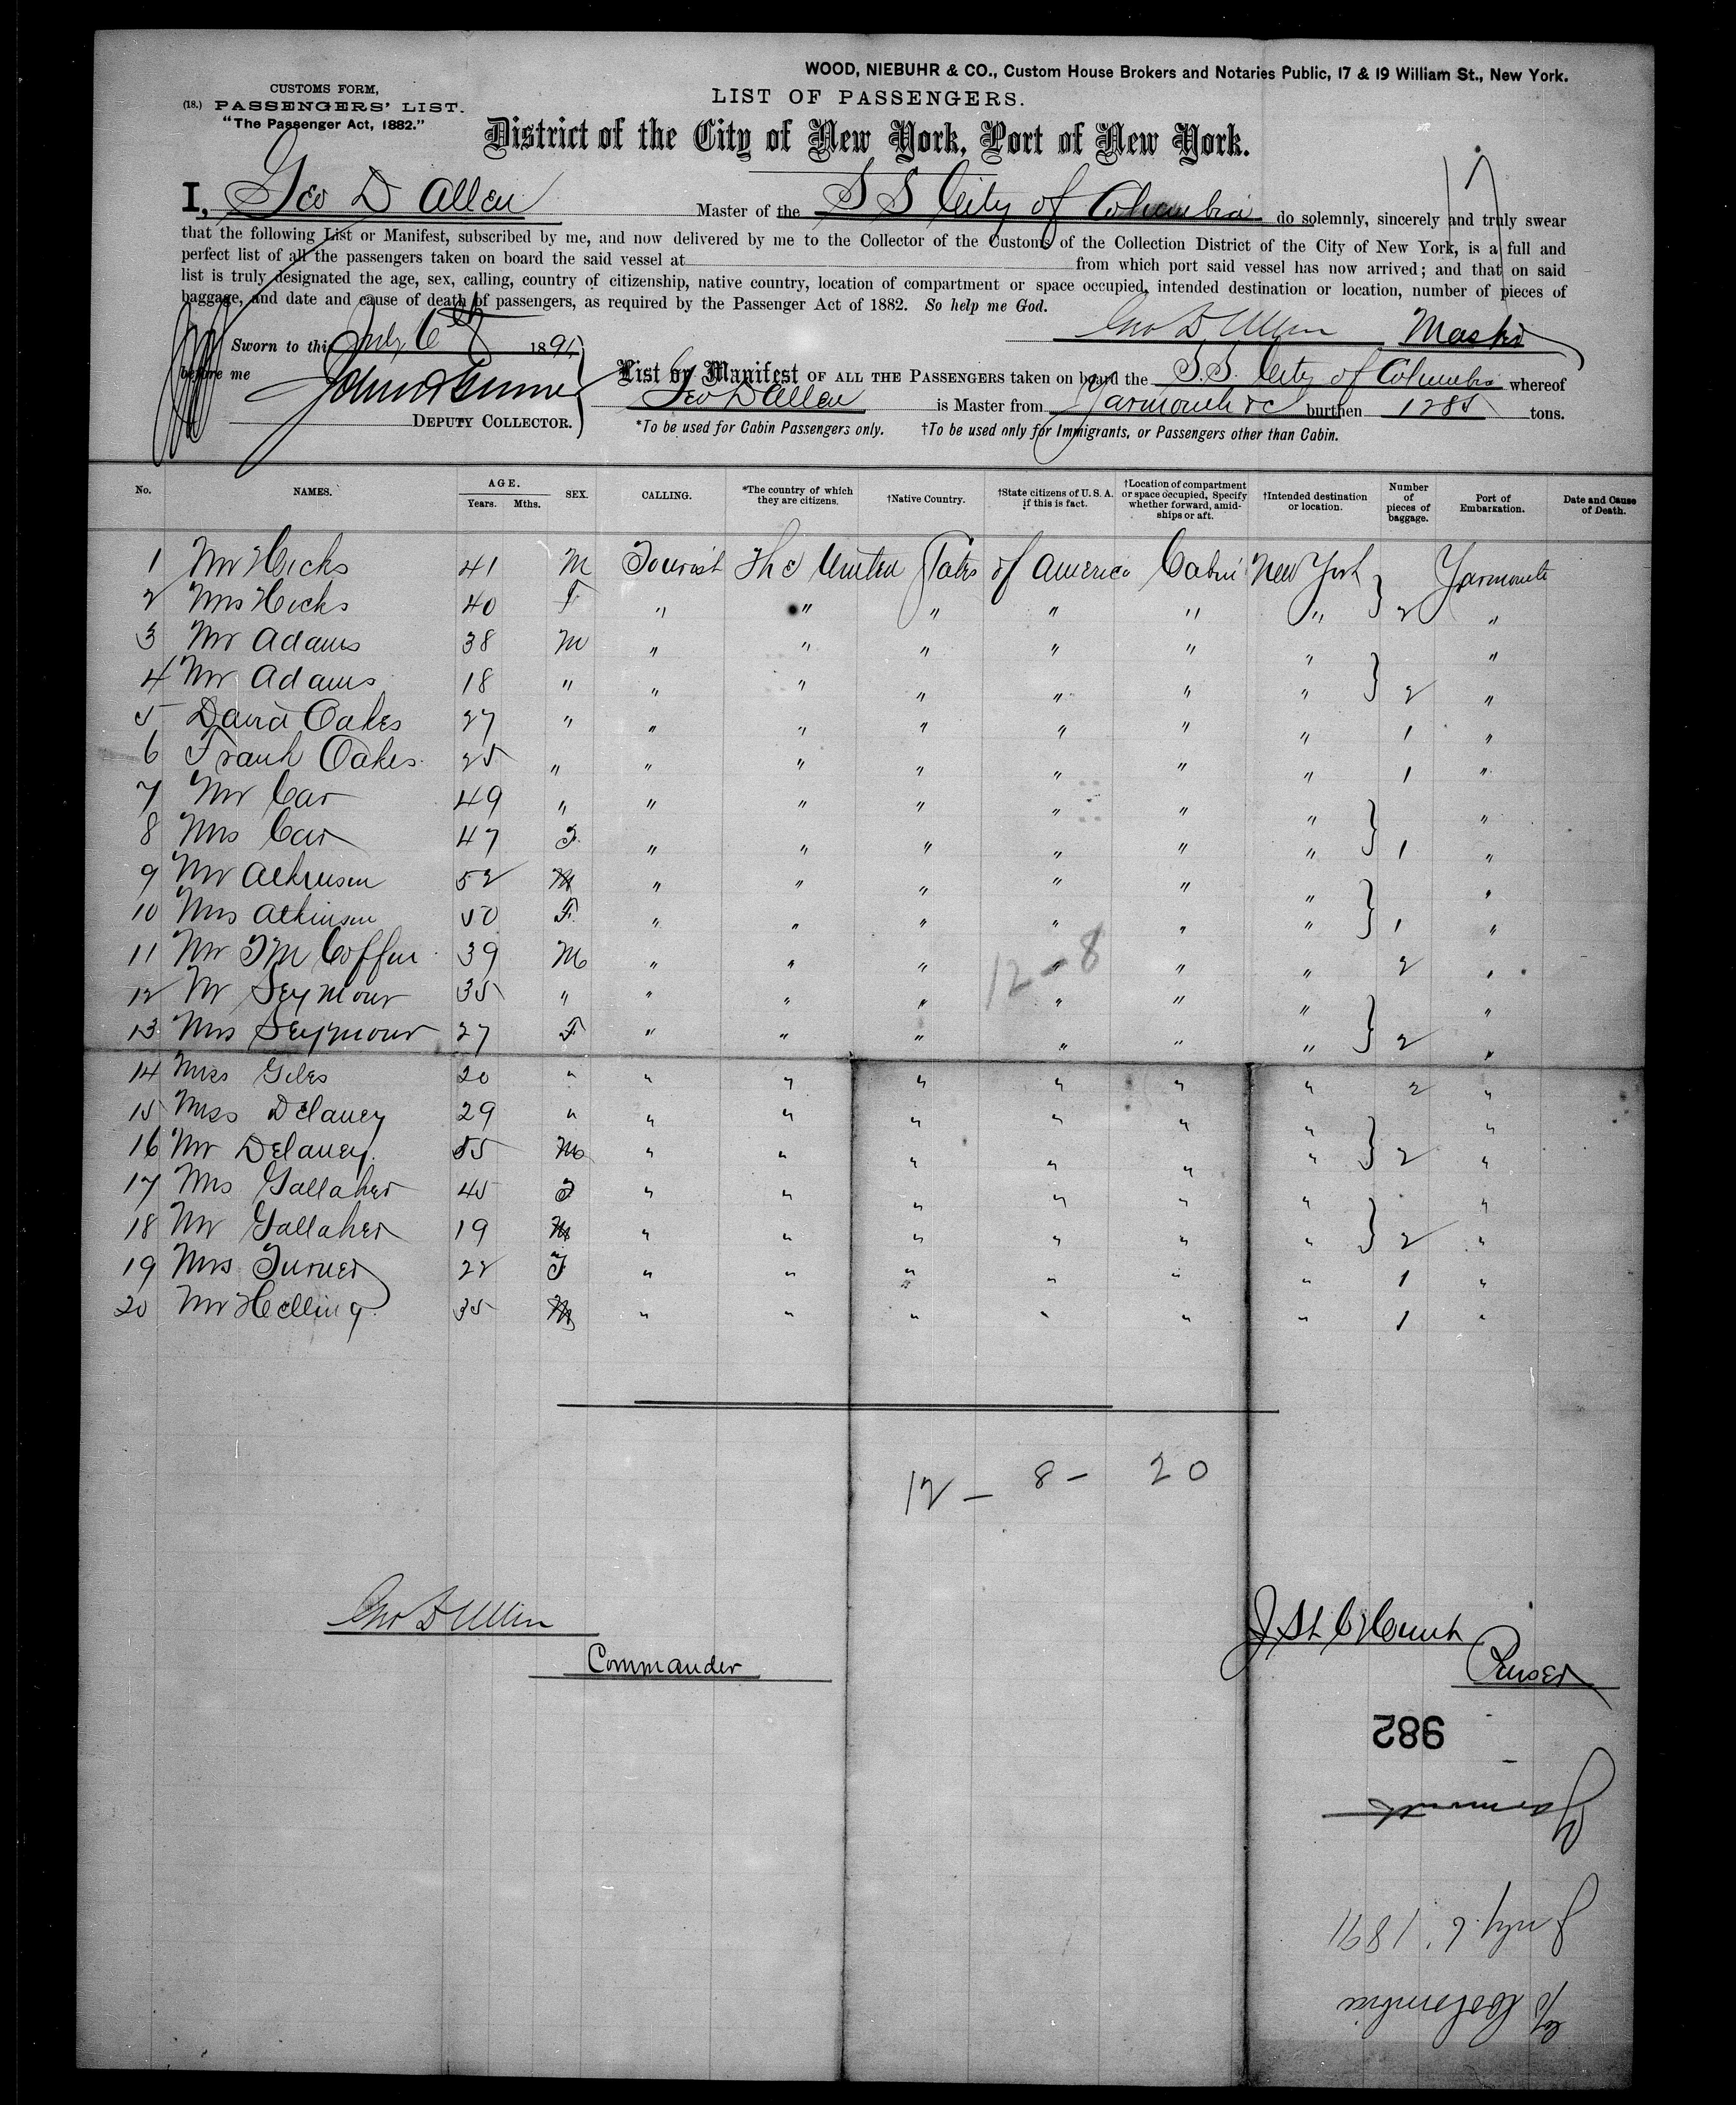 WOOD, NIEBUHR & CO., Custom House Brokers and Notaries Public, 17 & 19 William St., New York.
CUSTOMS FORM,
(18.) PASSENGERS' LIST.
"The Passenger Act, 1882."
LIST OF PASSENGERS.
District of the City of New York, Port of New York.
I, Geo D Allen Master of the S S City of Columbia do solemnly, sincerely and truly swear
that the following List or Manifest, subscribed by me, and now delivered by me to the Collector of the Customs of the Collection District of the City of New York, is a full and
perfect list of all the passengers taken on board the said vessel at from which port said vessel has now arrived; and that on said
list is truly designated the age, sex, calling, country of citizenship, native country, location of compartment or space occupied, intended destination or location, number of pieces of
baggage, and date and cause of death of passengers, as required by the Passenger Act of 1882. So help me God.
Geo D Allen Master
Sworn to this July 6th 1891
before me
DEPUTY COLLECTOR.
List or Manifest OF ALL THE PASSENGERS taken on board the S.S. City of Columbia whereof
Geo D Allen is Master from Yarmouth &c burthen 1285 tons.
*To be used for Cabin Passengers only. †To be used only for Immigrants, or Passengers other than Cabin.
No. NAMES. AGE. Years. Mths. SEX. CALLING. *The country of which they are citizens. †Native Country. †State citizens of U.S.A. if this is fact. †Location of compartment or space occupied, Specify whether forward, amidships or aft. †Intended destination or location. Number of pieces of baggage. Port of Embarkation. Date and Cause of Death.
1 Mr Hicks 41 M Tourist The United States of America Cabin New York Yarmouth
2 Mrs Hicks 40 F " " " " " " } 2 "
3 Mr Adams 38 M " " " " " " "
4 Mr Adams 18 " " " " " " " } 2 "
5 David Oakes 27 " " " " " " " 1 "
6 Frank Oakes 25 " " " " " " " 1 "
7 Mr Car 49 " " " " " " " "
8 Mrs Car 47 F " " " " " " } 1 "
9 Mr Atkinson 52 M " " " " " " "
10 Mrs Atkinson 50 F " " " " " " } 1 "
11 Mr J M Coffin 39 M " " " " " " 2 "
12 - 8
12 Mr Seymour 35 " " " " " " " "
13 Mrs Seymour 27 F " " " " " " } 2 "
14 Miss Giles 20 " " " " " " " 2 "
15 Miss Delaney 29 " " " " " " " "
16 Mr Delaney 55 M " " " " " " } 2 "
17 Mrs Gallaher 45 F " " " " " " "
18 Mr Gallaher 19 M " " " " " " } 2 "
19 Mrs Turner 22 F " " " " " " 1 "
20 Mr Helling 35 M " " " " " " 1 "
12 - 8 - 20
Geo D Allen
Commander
Purser
982
Yarmouth
July 6" 1891
C/o Columbia